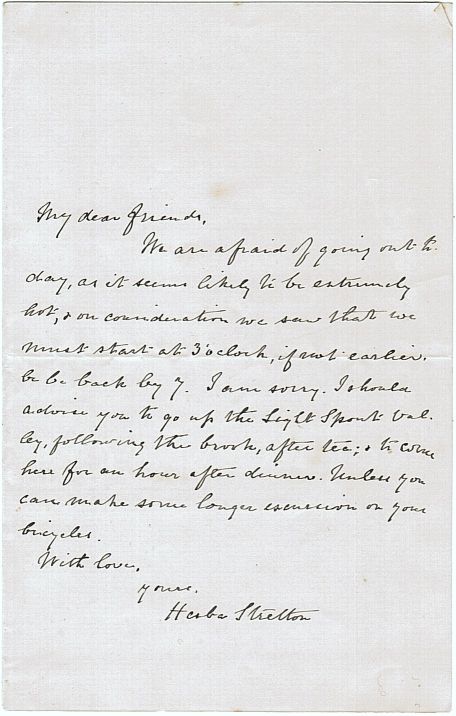 My dear friends,
We are afraid of going out to-
day, as it seems likely to be extremely
hot, & on consideration we saw that we
must start at 3 o'clock, if not earlier.
be be back by 7. I am sorry. I should
advise you to go up the Light Spout Val-
ley, following the brook, after tea; & to come
here for an hour after dinner. Unless you
can make some longer excursion on your
bicycles.
With love,
yours.
Hesba Stretton